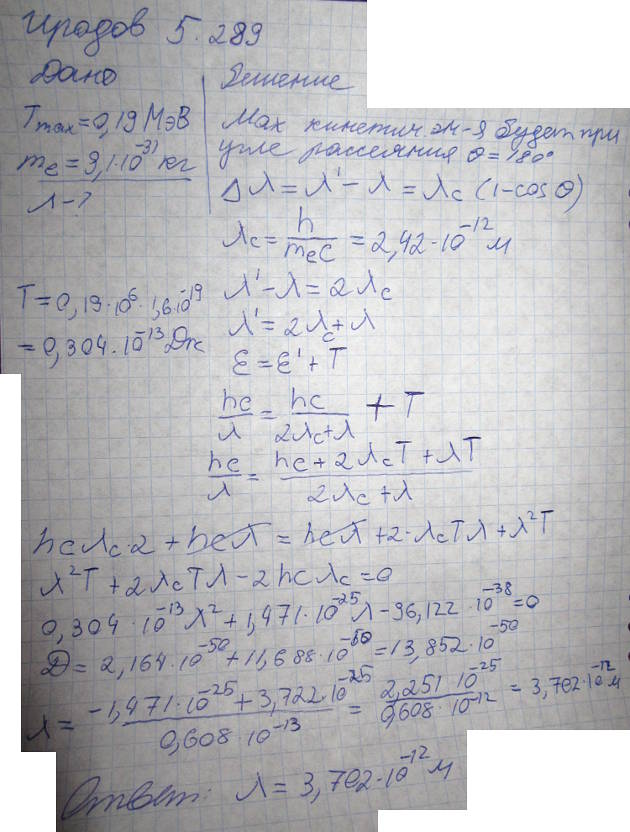 Иродов 5.289
Дано
T_max = 0,19 МэВ
m_e = 9,1·10^-31 кг
λ - ?
T = 0,19·10^6·1,6·10^-19
= 0,304·10^-13 Дж
Решение
Max кинетич. эн-я будет при
угле рассеяния θ = 180°
Δλ = λ' - λ = λ_c (1 - cos θ)
λ_c = h/(m_e c) = 2,42·10^-12 м
λ' - λ = 2λ_c
λ' = 2λ_c + λ
ε = ε' + T
hc/λ = hc/(2λ_c + λ) + T
hc/λ = (hc + 2λ_c T + λT)/(2λ_c + λ)
hcλ_c·2 + hcλ = hcλ + 2·λ_c Tλ + λ²T
λ²T + 2λ_c Tλ - 2hcλ_c = 0
0,304·10^-13 λ² + 1,471·10^-25 λ - 96,122·10^-38 = 0
D = 2,164·10^-50 + 11,688·10^-50 = 13,852·10^-50
λ = (-1,471·10^-25 + 3,722·10^-25)/(0,608·10^-13) = (2,251·10^-25)/(0,608·10^-12) = 3,702·10^-12 м
Ответ: λ = 3,702·10^-12 м